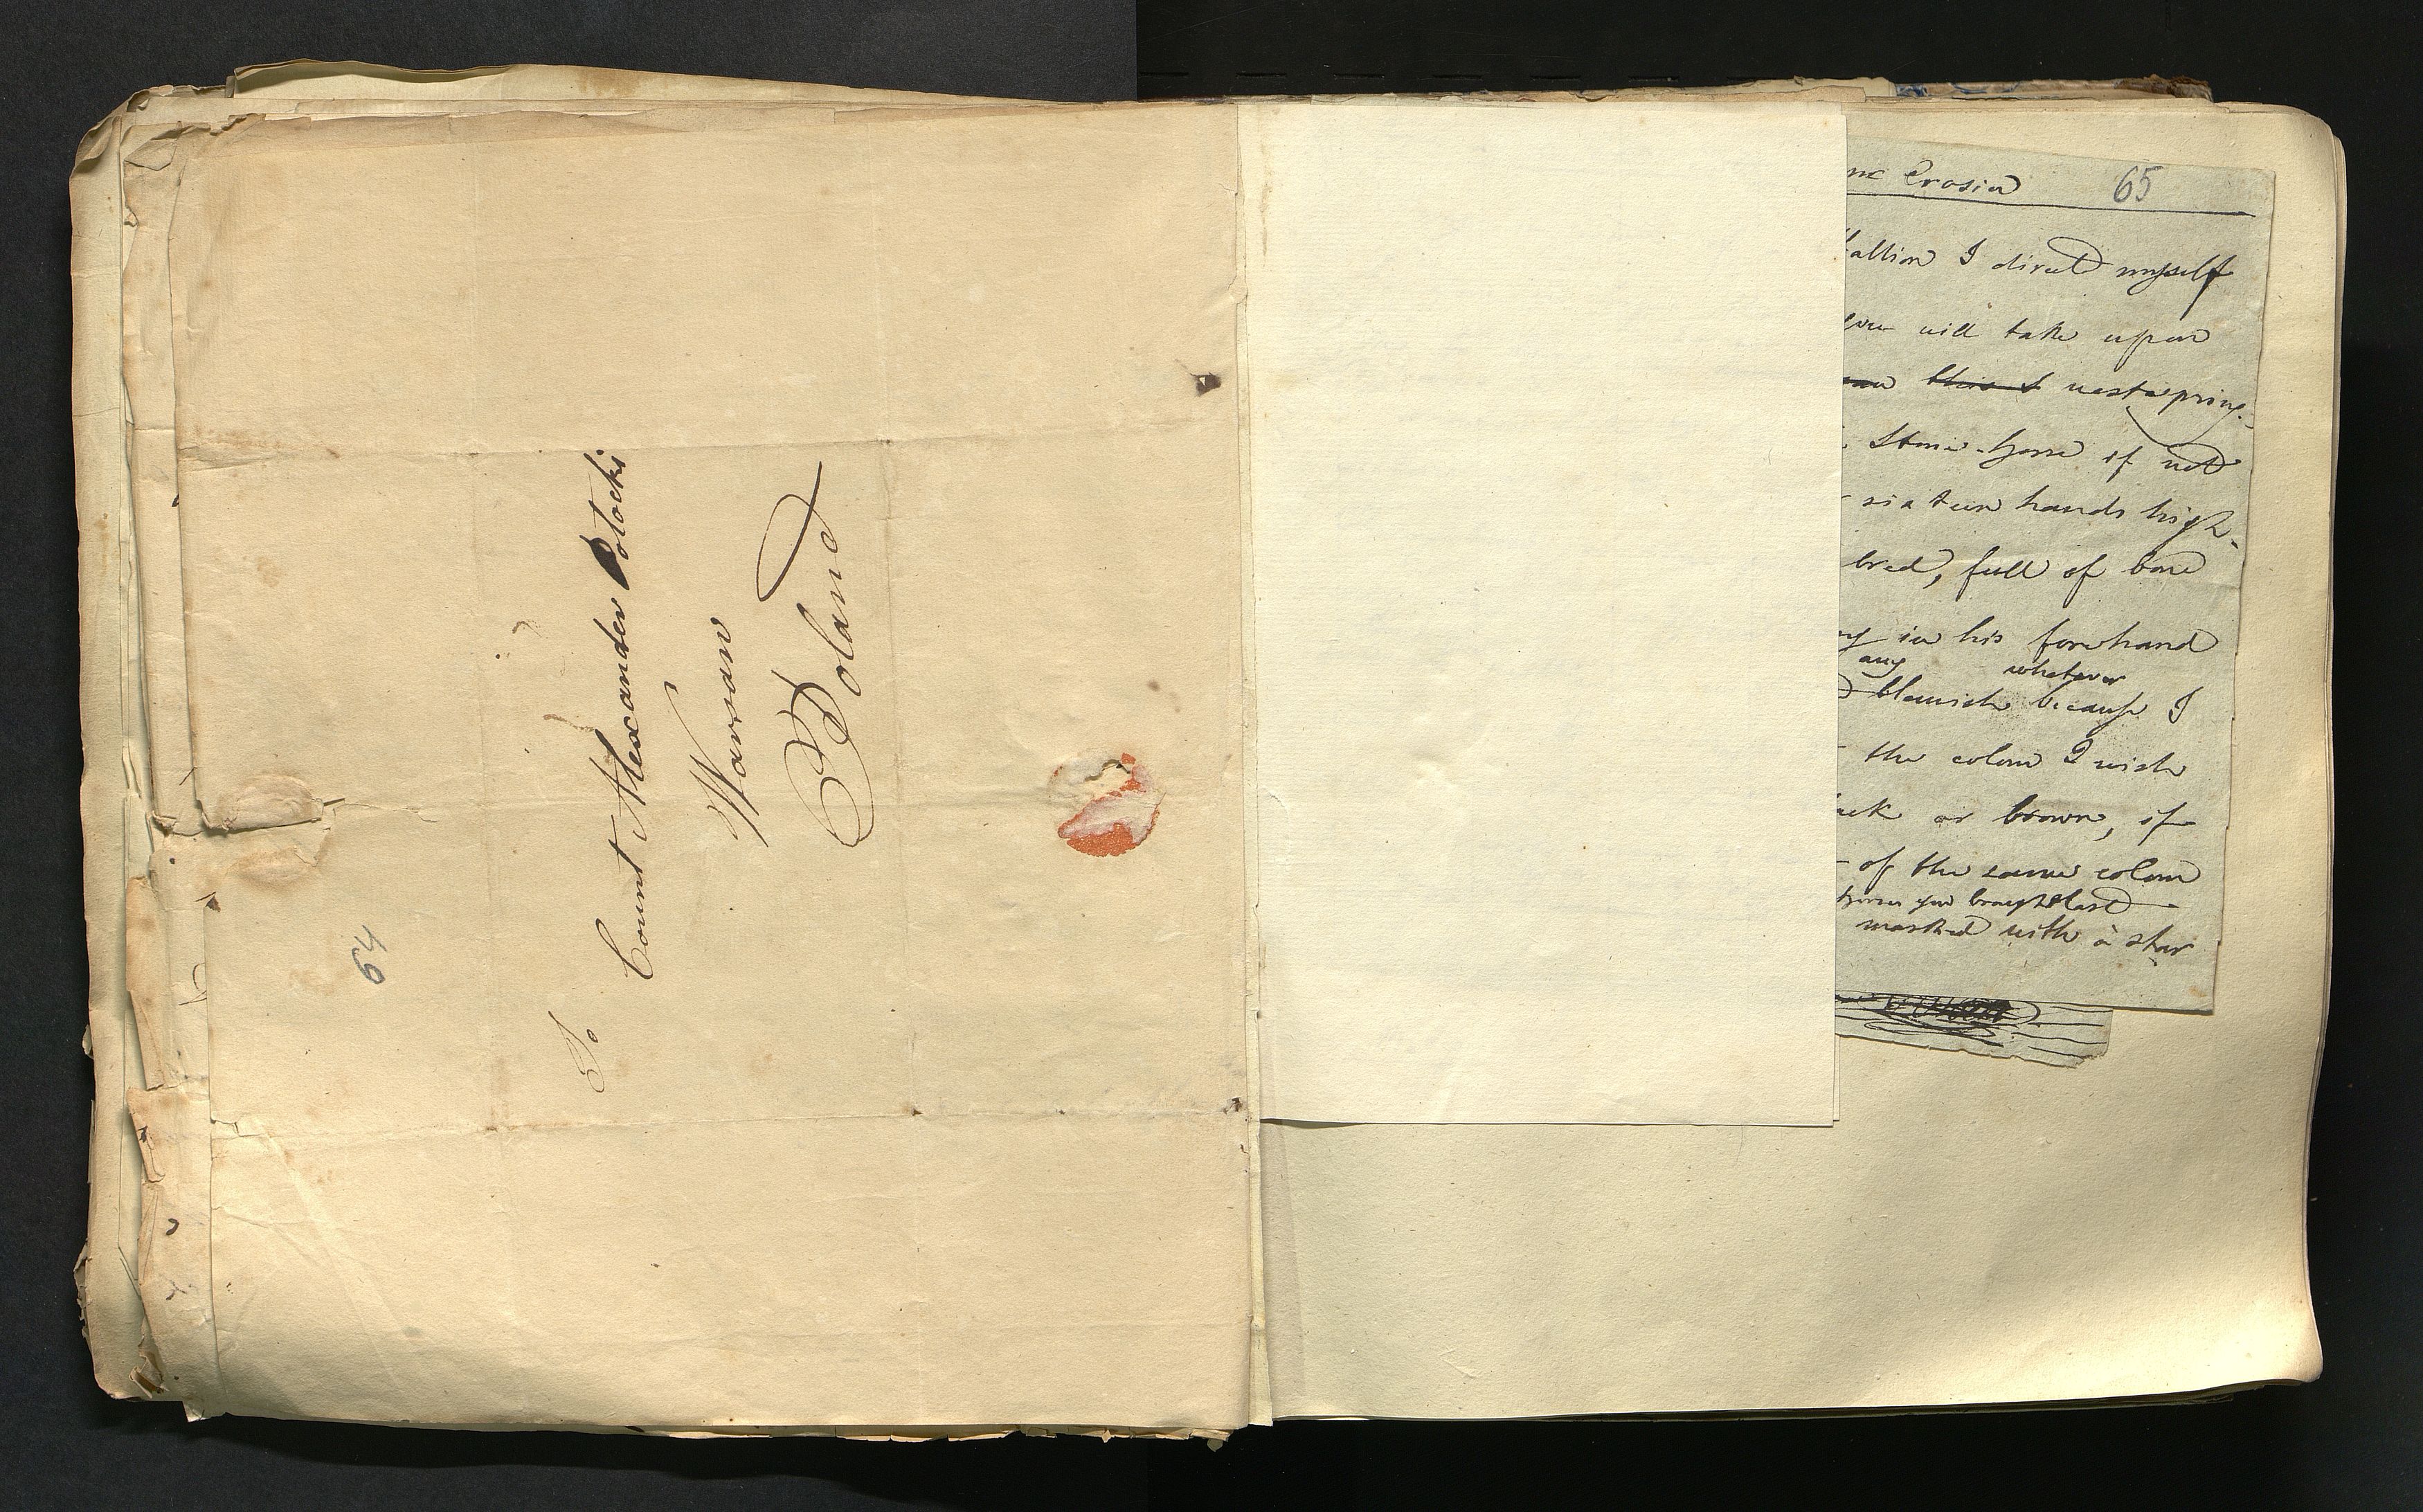 64
To
Count Alexander Potocki
Warsaw
Poland
65
I direct myself
will take upon
next spring.
Stone-horse if not
sixteen hands high.
bred, full of bone
in his forehand
any whatever
blemish because I
the colour I wish
or brown, if
of the same colour
you brought last
marked with a star